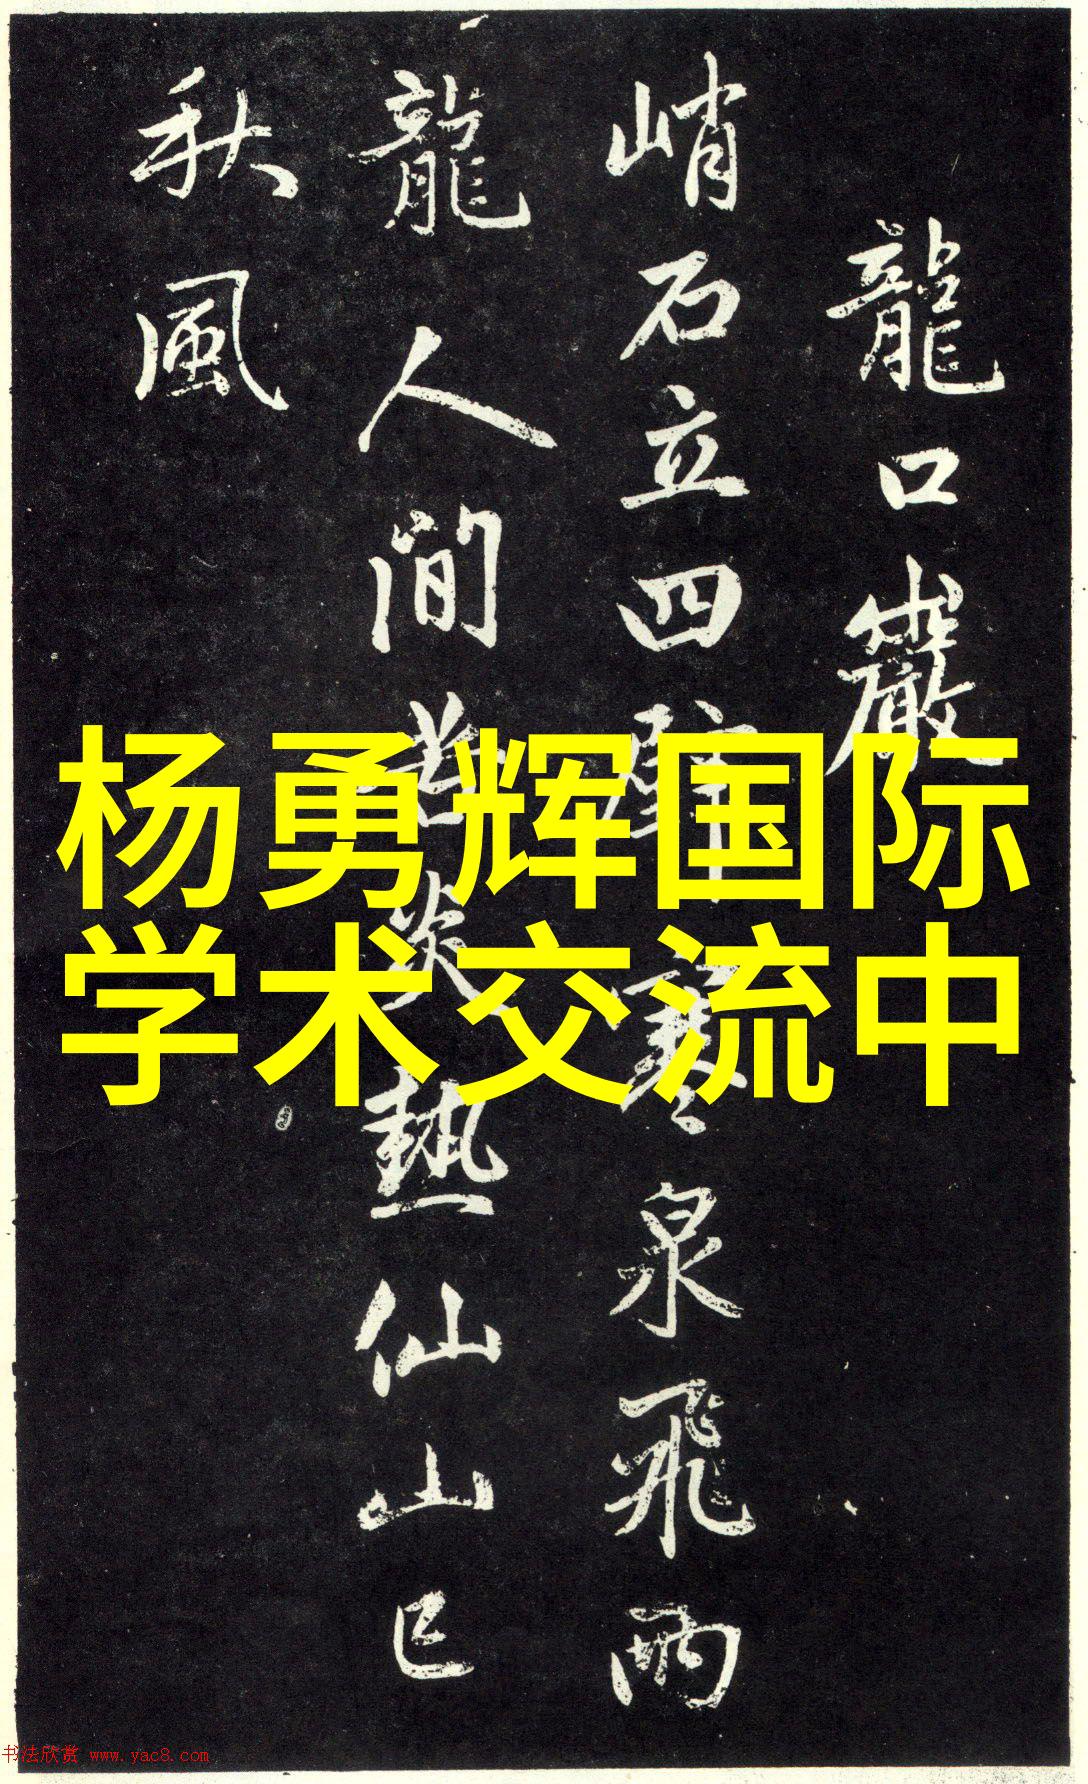 龍口巖
峭石立四壁寒泉飛兩
龍人間苦炎熱仙山已
秋風
杨勇辉国际
学术交流中
书法欣赏 www.yac8.com